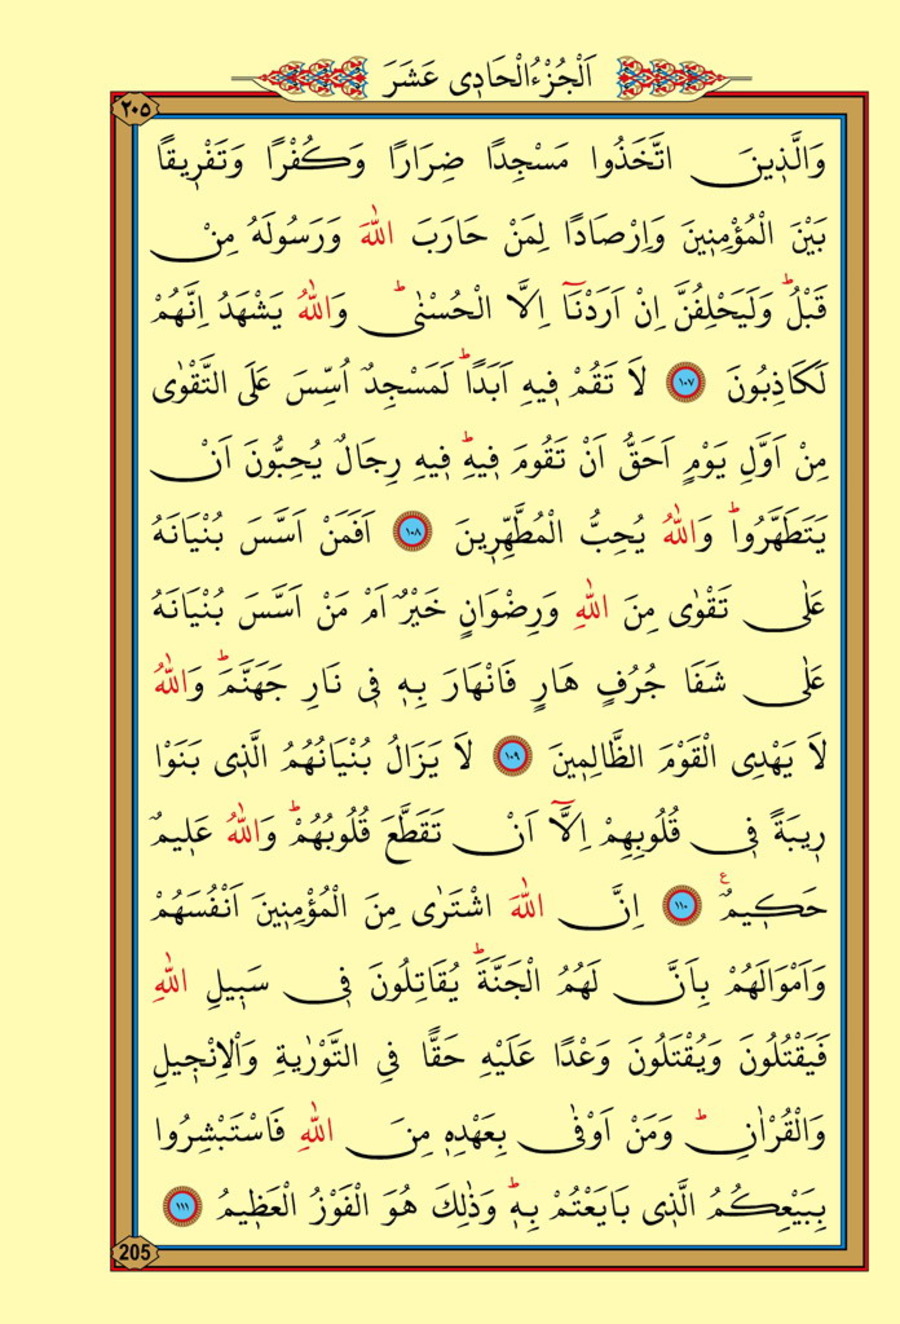 اَلْجُزْءُ الْحَادِى عَشَرَ
٢٠٥
وَالَّذِينَ اتَّخَذُوا مَسْجِدًا ضِرَارًا وَكُفْرًا وَتَفْرِيقًا
بَيْنَ الْمُؤْمِنِينَ وَاِرْصَادًا لِمَنْ حَارَبَ اللّٰهَ وَرَسُولَهُ مِنْ
قَبْلُ ط وَلَيَحْلِفُنَّ اِنْ اَرَدْنَٓا اِلَّا الْحُسْنٰى ط وَاللّٰهُ يَشْهَدُ اِنَّهُمْ
لَكَاذِبُونَ ١٠٧ لَا تَقُمْ فِيهِ اَبَدًا ط لَمَسْجِدٌ اُسِّسَ عَلَى التَّقْوٰى
مِنْ اَوَّلِ يَوْمٍ اَحَقُّ اَنْ تَقُومَ فِيهِ ط فِيهِ رِجَالٌ يُحِبُّونَ اَنْ
يَتَطَهَّرُوا ط وَاللّٰهُ يُحِبُّ الْمُطَّهِّرِينَ ١٠٨ اَفَمَنْ اَسَّسَ بُنْيَانَهُ
عَلٰى تَقْوٰى مِنَ اللّٰهِ وَرِضْوَانٍ خَيْرٌ اَمْ مَنْ اَسَّسَ بُنْيَانَهُ
عَلٰى شَفَا جُرُفٍ هَارٍ فَانْهَارَ بِهٖ فِى نَارِ جَهَنَّمَ ط وَاللّٰهُ
لَا يَهْدِى الْقَوْمَ الظَّالِمِينَ ١٠٩ لَا يَزَالُ بُنْيَانُهُمُ الَّذِى بَنَوْا
رِيبَةً فِى قُلُوبِهِمْ اِلَّٓا اَنْ تَقَطَّعَ قُلُوبُهُمْ ط وَاللّٰهُ عَلِيمٌ
حَكِيمٌ ع ١١٠ اِنَّ اللّٰهَ اشْتَرٰى مِنَ الْمُؤْمِنِينَ اَنْفُسَهُمْ
وَاَمْوَالَهُمْ بِاَنَّ لَهُمُ الْجَنَّةَ ط يُقَاتِلُونَ فِى سَبِيلِ اللّٰهِ
فَيَقْتُلُونَ وَيُقْتَلُونَ وَعْدًا عَلَيْهِ حَقًّا فِى التَّوْرٰيةِ وَالْاِنْجِيلِ
وَالْقُرْاٰنِ ط وَمَنْ اَوْفٰى بِعَهْدِهٖ مِنَ اللّٰهِ فَاسْتَبْشِرُوا
بِبَيْعِكُمُ الَّذِى بَايَعْتُمْ بِهٖ ط وَذٰلِكَ هُوَ الْفَوْزُ الْعَظِيمُ ١١١
205